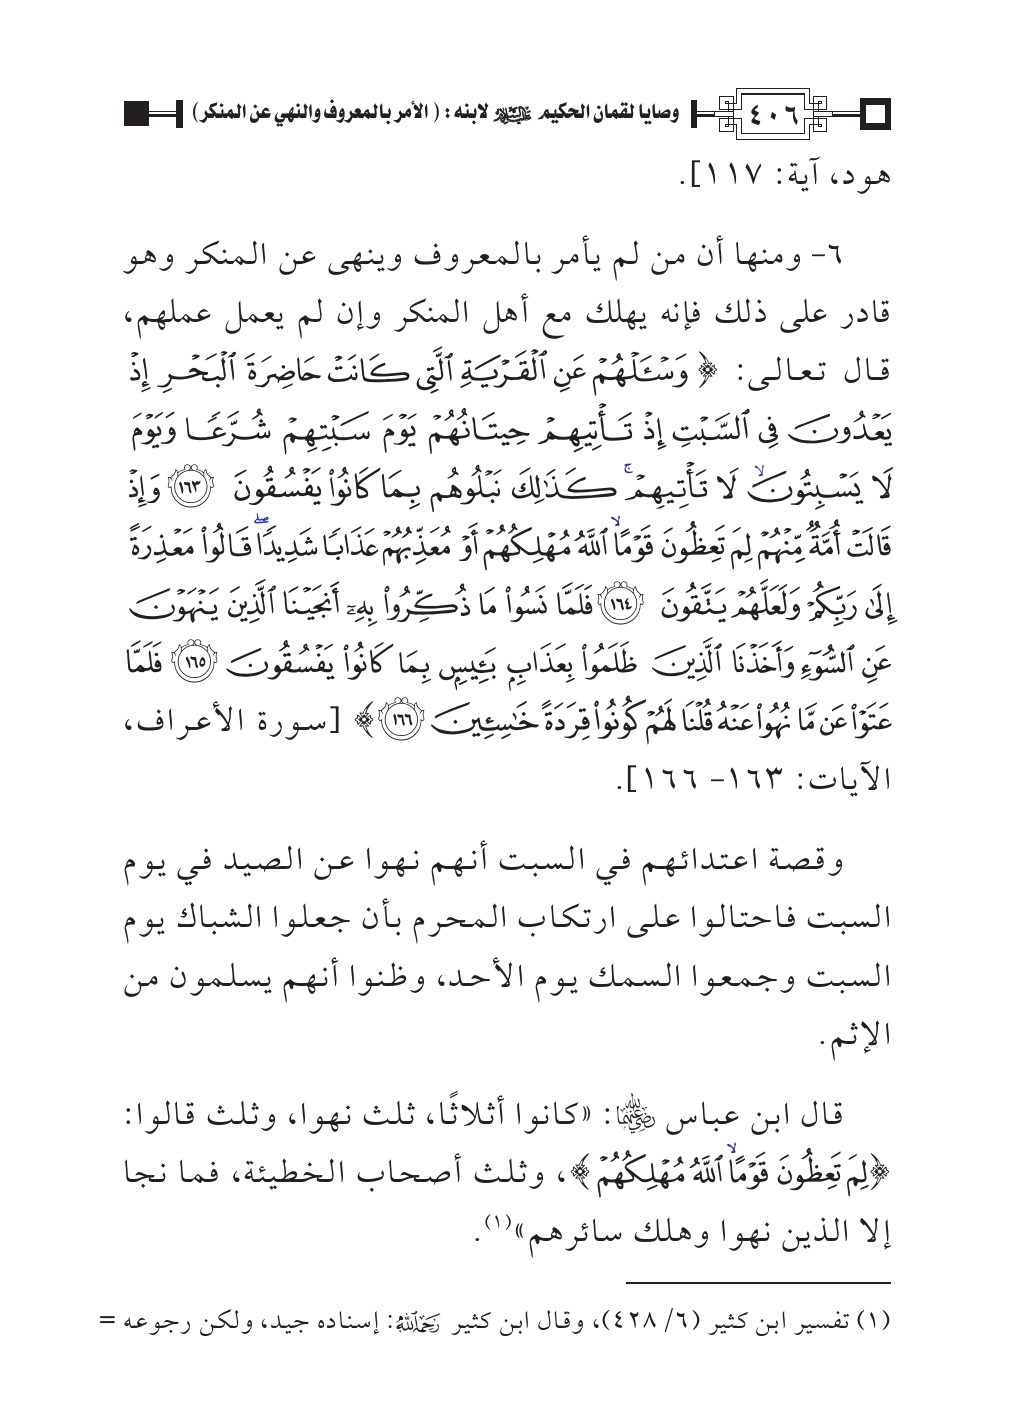 ٤٠٦ وصايا لقمان الحكيم عليه السلام لابنه : ( الأمر بالمعروف والنهي عن المنكر)
هود، آية: ١١٧].
٦- ومنها أن من لم يأمر بالمعروف وينهى عن المنكر وهو
قادر على ذلك فإنه يهلك مع أهل المنكر وإن لم يعمل عملهم،
قال تعالى: ﴿ وَسْـَٔلْهُمْ عَنِ ٱلْقَرْيَةِ ٱلَّتِى كَانَتْ حَاضِرَةَ ٱلْبَحْرِ إِذْ
يَعْدُونَ فِى ٱلسَّبْتِ إِذْ تَأْتِيهِمْ حِيتَانُهُمْ يَوْمَ سَبْتِهِمْ شُرَّعًا وَيَوْمَ
لَا يَسْبِتُونَ ۙ لَا تَأْتِيهِمْ ۚ كَذَٰلِكَ نَبْلُوهُم بِمَا كَانُوا۟ يَفْسُقُونَ ١٦٣ وَإِذْ
قَالَتْ أُمَّةٌ مِّنْهُمْ لِمَ تَعِظُونَ قَوْمًا ۙ ٱللَّهُ مُهْلِكُهُمْ أَوْ مُعَذِّبُهُمْ عَذَابًا شَدِيدًا ۖ قَالُوا۟ مَعْذِرَةً
إِلَىٰ رَبِّكُمْ وَلَعَلَّهُمْ يَتَّقُونَ ١٦٤ فَلَمَّا نَسُوا۟ مَا ذُكِّرُوا۟ بِهِۦٓ أَنجَيْنَا ٱلَّذِينَ يَنْهَوْنَ
عَنِ ٱلسُّوٓءِ وَأَخَذْنَا ٱلَّذِينَ ظَلَمُوا۟ بِعَذَابٍۭ بَـِٔيسٍۭ بِمَا كَانُوا۟ يَفْسُقُونَ ١٦٥ فَلَمَّا
عَتَوْا۟ عَن مَّا نُهُوا۟ عَنْهُ قُلْنَا لَهُمْ كُونُوا۟ قِرَدَةً خَـٰسِـِٔينَ ١٦٦ ﴾ [سورة الأعراف،
الآيات: ١٦٣- ١٦٦].
وقصة اعتدائهم في السبت أنهم نهوا عن الصيد في يوم
السبت فاحتالوا على ارتكاب المحرم بأن جعلوا الشباك يوم
السبت وجمعوا السمك يوم الأحد، وظنوا أنهم يسلمون من
الإثم.
قال ابن عباس رضي الله عنهما: «كانوا أثلاثًا، ثلث نهوا، وثلث قالوا:
﴿لِمَ تَعِظُونَ قَوْمًا ۙ ٱللَّهُ مُهْلِكُهُمْ ﴾، وثلث أصحاب الخطيئة، فما نجا
إلا الذين نهوا وهلك سائرهم»(١).
(١) تفسير ابن كثير (٦/ ٤٢٨)، وقال ابن كثير رحمه الله: إسناده جيد، ولكن رجوعه =